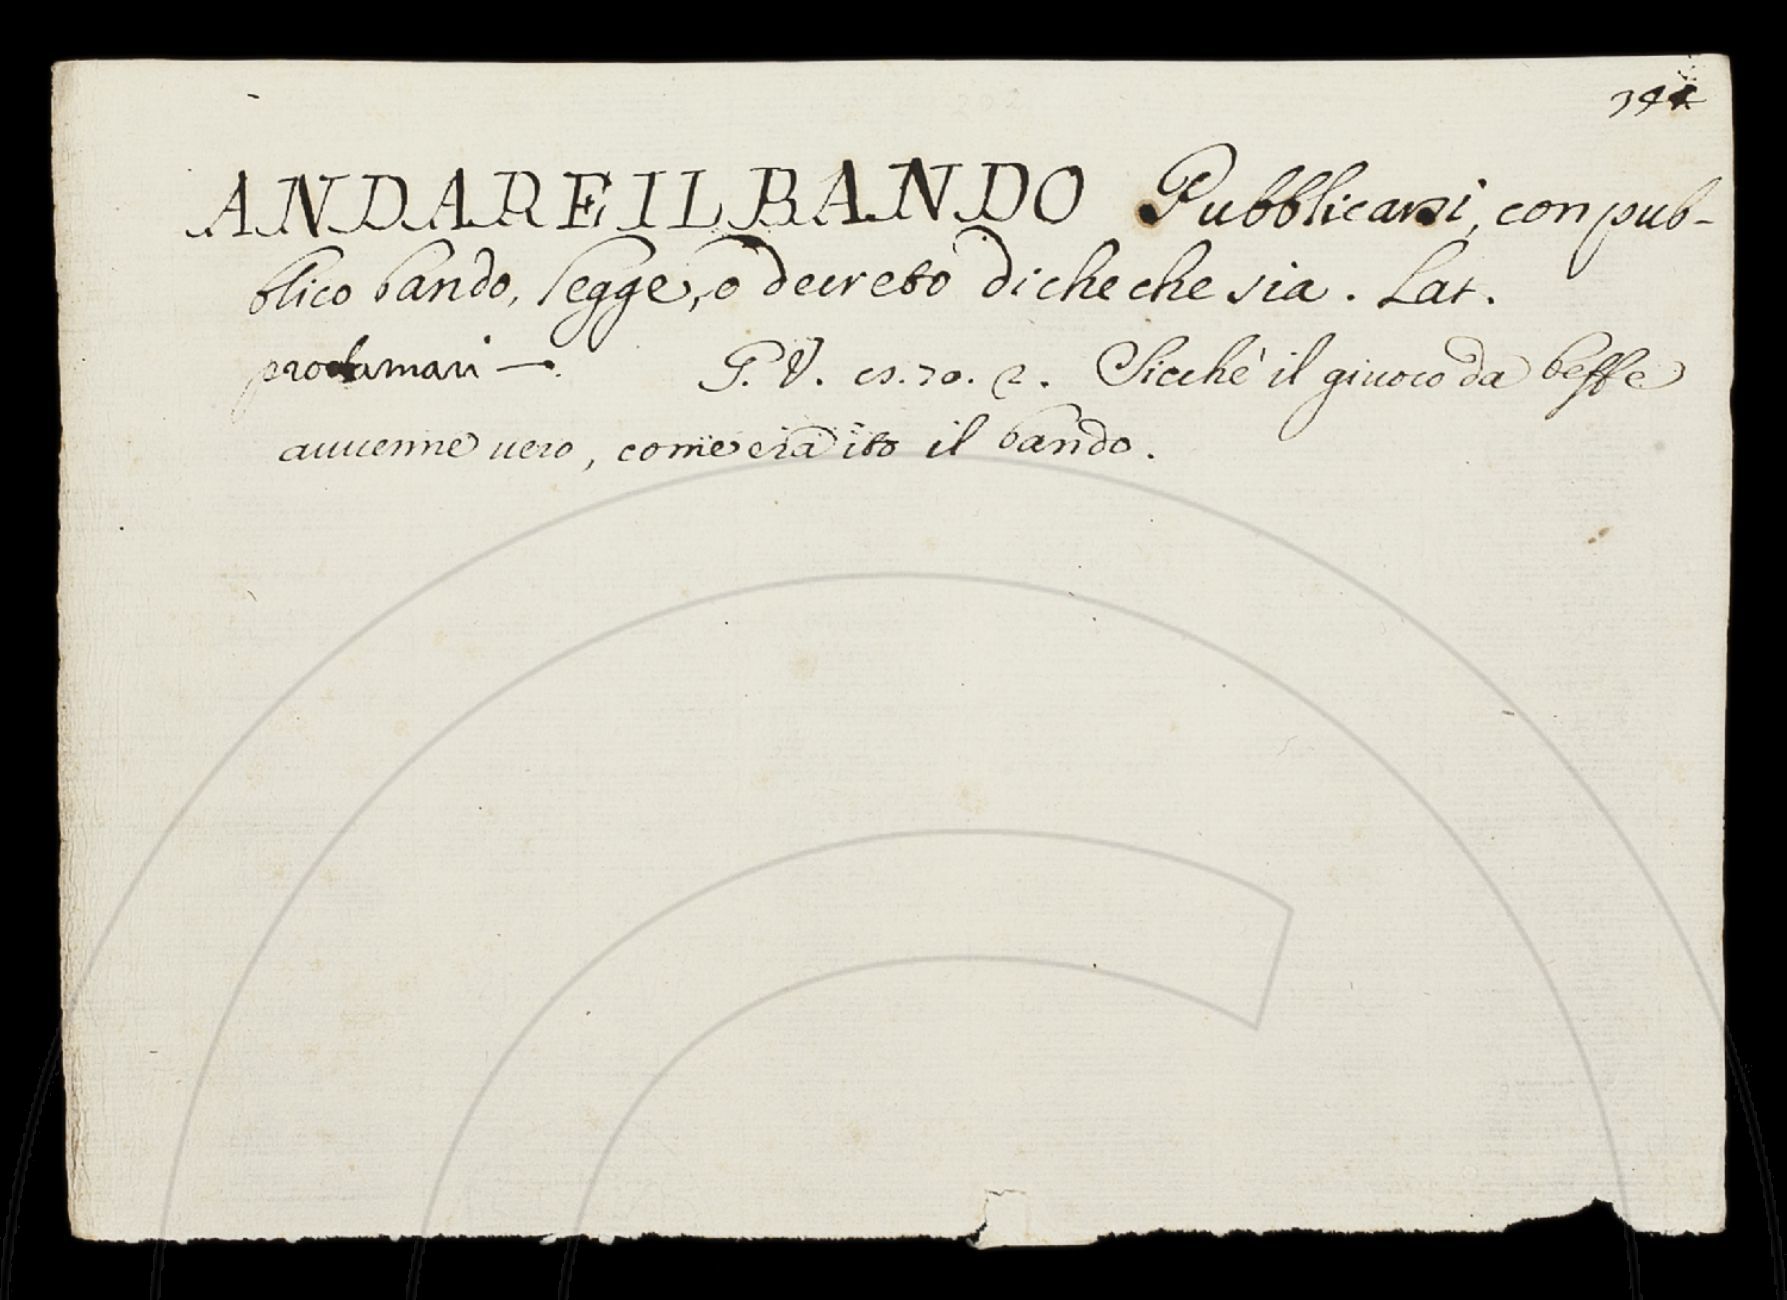 ANDARE IL BANDO Pubblicarsi, con pub-
blico bando, legge, o decreto di che che sia. Lat.
proclamari —. G. V. cs. 70. 2. Sicchè il giuoco da beffe
auuenne uero, come era ito il bando.